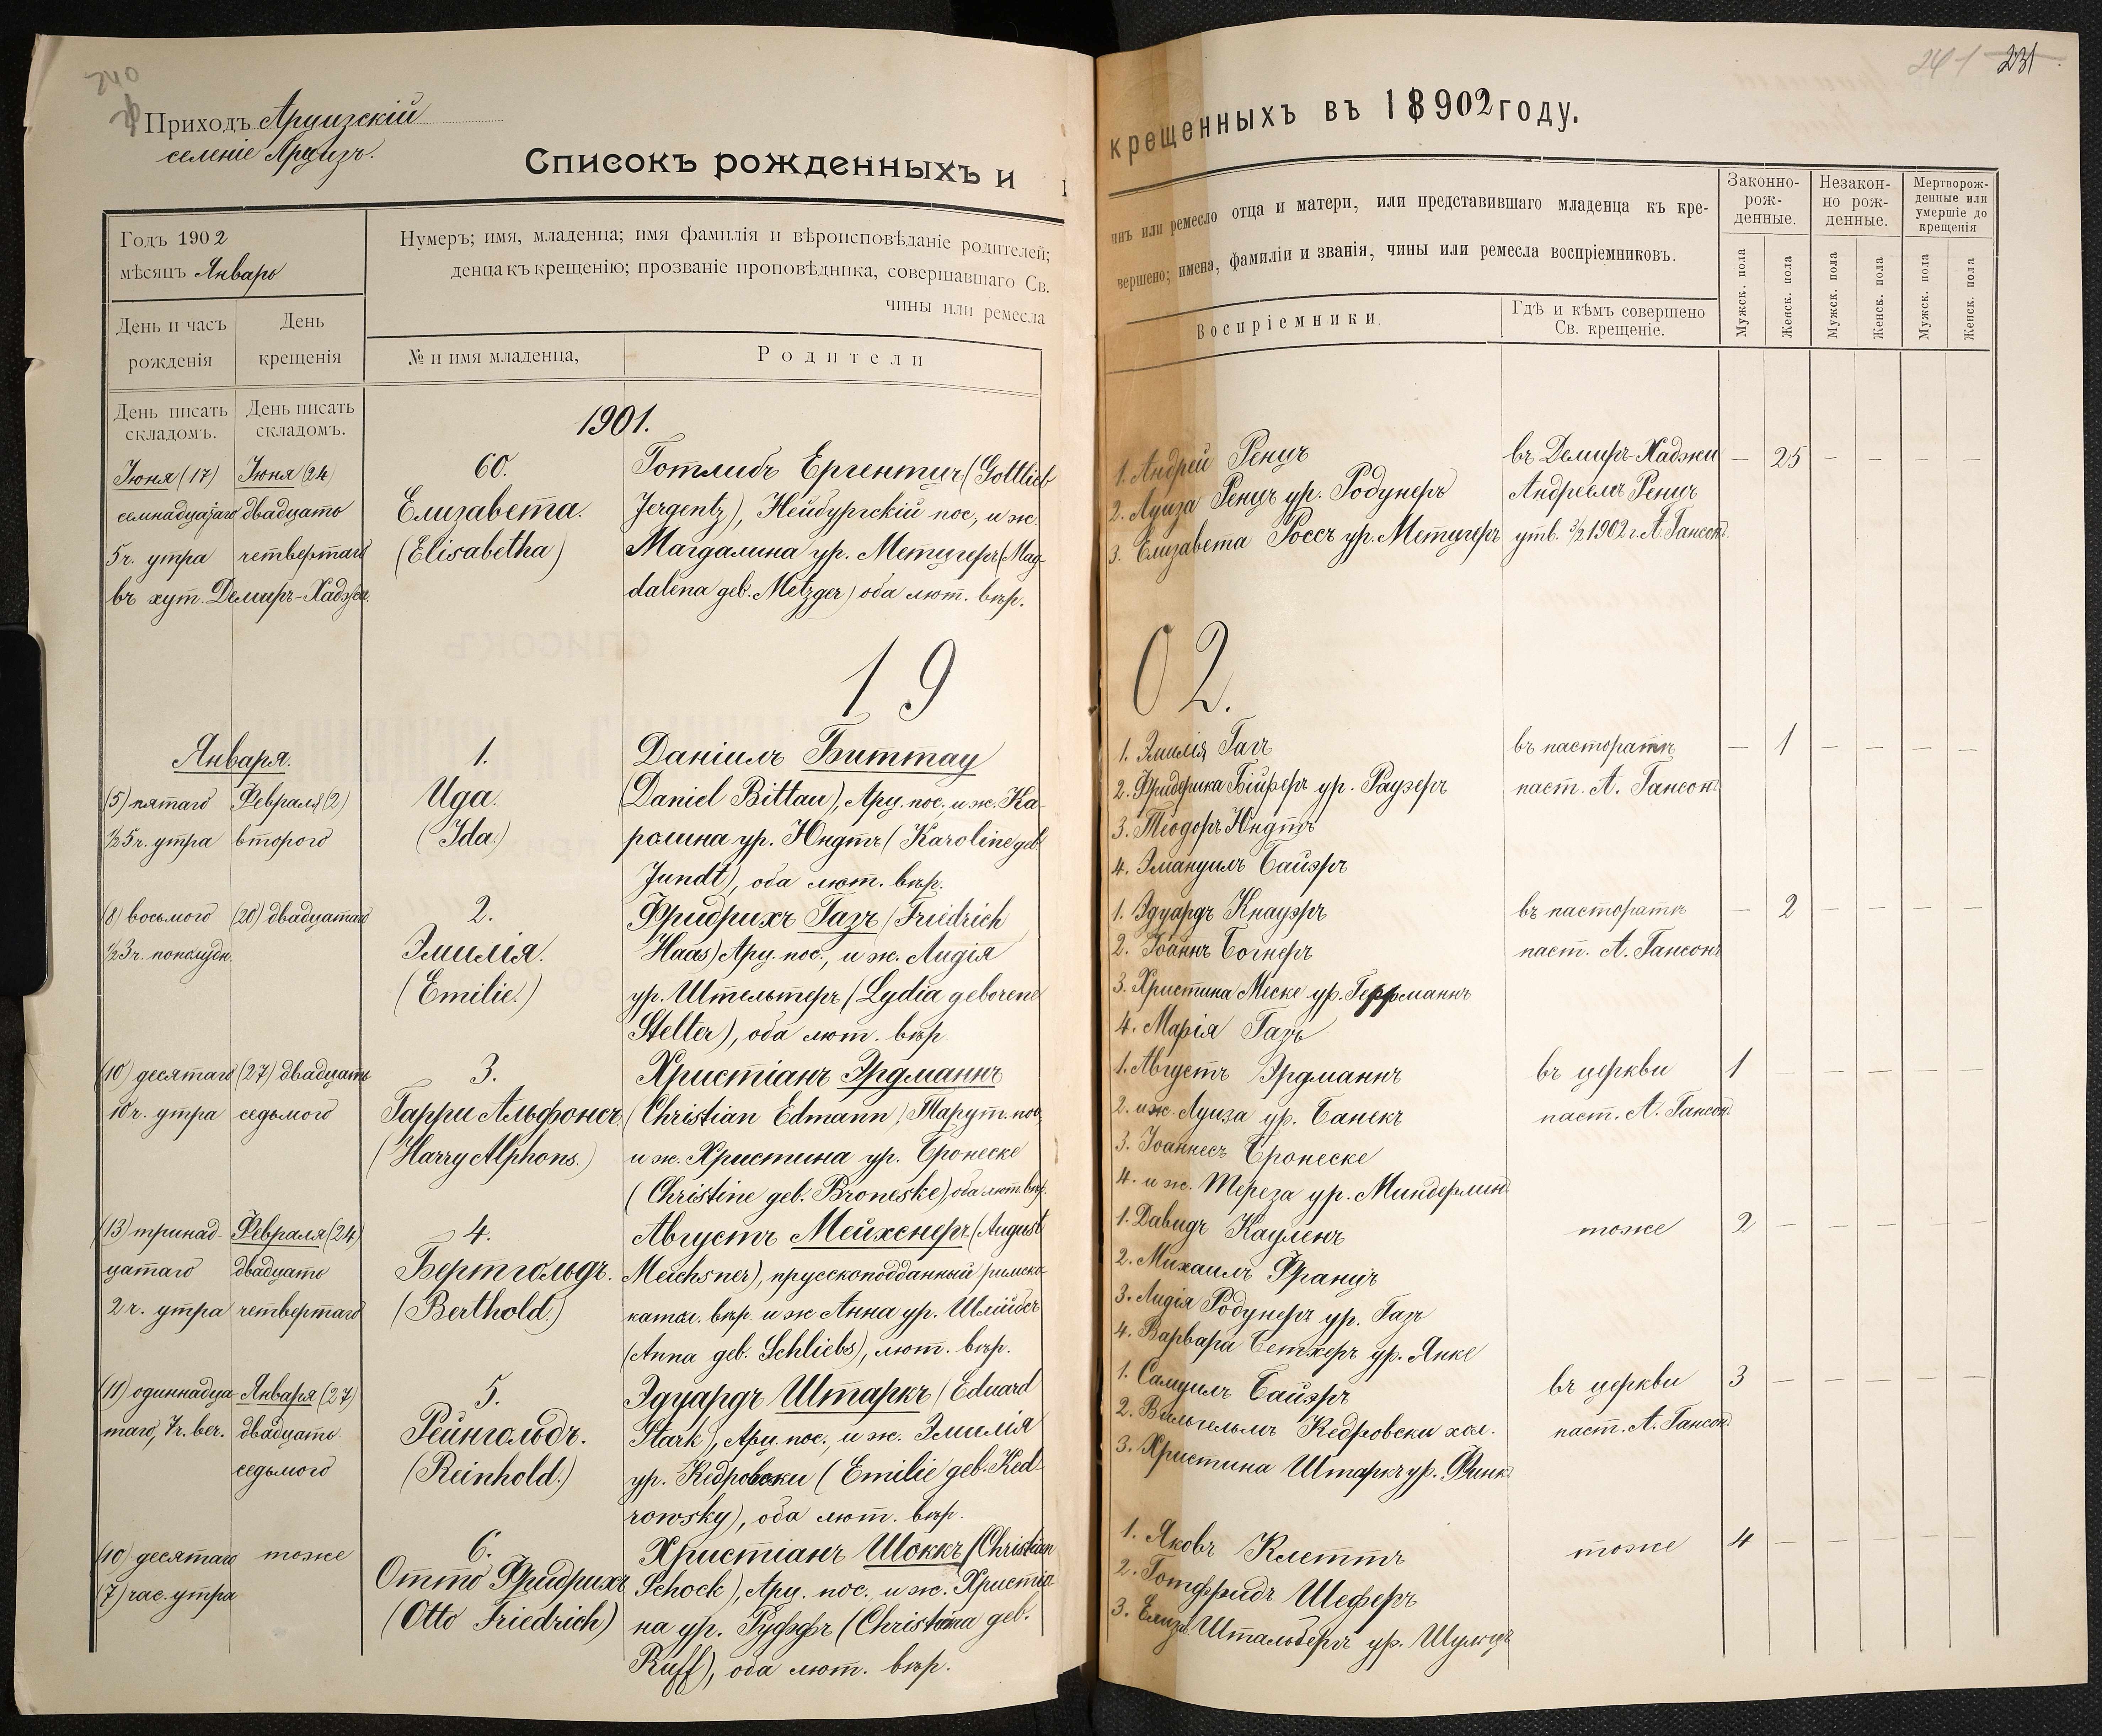 240
Приходъ Арцизскій
селеніе Арцизъ.
Списокъ рожденныхъ и
Годъ 1902
мѣсяцъ Январь
Нумеръ; имя, младенца; имя фамилія и вѣроисповѣданіе родителей;
денца къ крещенію; прозваніе проповѣдника, совершавшаго Св.
чины или ремесла
День и часъ
рожденія
День
крещенія
№ и имя младенца,
Родители
День писать
складомъ.
День писать
складомъ.
1901.
Іюня (17)
семнадцатаго
5 ч. утра
въ хут. Демиръ-Хаджи.
Іюня (24)
двадцать
четвертаго
60.
Елизавета.
(Elisabetha)
Готлибъ Ергентцъ (Gottlieb
Jergentz), Нейбургскій пос., и ж.
Магдалина ур. Метцгеръ (Mag-
dalena geb. Metzger) оба лют. вѣр.
19
Января.
(5) пятаго
½5 ч. утра
Февраля (2)
второго
1.
Ида.
(Ida.)
Даніилъ Биттау
(Daniel Bittau), Арц. пос., и ж. Ка-
ролина ур. Юндтъ (Karoline geb.
Jundt), оба лют. вѣр.
(8) восьмого
½3 ч. пополудн.
(20) двадцатаго
2.
Эмилія.
(Emilie.)
Фридрихъ Газъ (Friedrich
Haas) Арц. пос., и ж. Лидія
ур. Штельтеръ (Lydia geborene
Stelter), оба лют. вѣр.
(10) десятаго
10 ч. утра
(27) двадцать
седьмого
3.
Гарри Альфонсъ.
(Harry Alphons.)
Христіанъ Эрдманнъ
(Christian Edmann), Тарут. пос.,
и ж. Христина ур. Бронеске
(Christine geb. Broneske) оба лют. вѣр.
(13) тринад-
цатаго
2 ч. утра
Февраля (24)
двадцать
четвертаго
4.
Бертгольдъ.
(Berthold.)
Августъ Мейхснеръ (August
Meichsner), прусскоподданный римско-
катол. вѣр. и ж. Анна ур. Шлибсъ
(Anna geb. Schliebs), лют. вѣр.
(11) одиннадца-
таго, 7 ч. веч.
Января (27)
двадцать
седьмого
5.
Рейнгольдъ.
(Reinhold.)
Эдуардъ Штаркъ (Eduard
Stark), Арц. пос., и ж. Эмилія
ур. Кедровски (Emilie geb. Ked-
rowsky), оба лют. вѣр.
(10) десятаго
(7) час. утра
тоже
6.
Отто Фридрихъ
(Otto Friedrich)
Христіанъ Шоккъ (Christian
Schock), Арц. пос. и ж. Христіа-
на ур. Руффъ (Christiana geb.
Ruff), оба лют. вѣр.
241 231
крещенныхъ въ 18902 году.
чинъ или ремесло отца и матери, или представившаго младенца къ кре-
вершено; имена, фамиліи и званія, чины или ремесла воспріемниковъ.
Воспріемники.
Гдѣ и кѣмъ совершено
Св. крещеніе.
Законно-
рож-
денные.
Незакон-
но рож-
денные.
Мертворож-
денные или
умершіе до
крещенія
Мужск. пола
Женск. пола
Мужск. пола
Женск. пола
Мужск. пола
Женск. пола
1. Андрей Ренцъ
2. Луиза Ренцъ ур. Родунеръ
3. Елизавета Россъ ур. Метцгеръ
въ Демиръ-Хаджи
Андреемъ Ренцъ
утв. 3/2 1902 г. А. Гансонъ.
— 25 — — — —
02.
1. Эмилія Газъ
2. Фридерика Бійферъ ур. Раузеръ
3. Теодоръ Юндтъ
4. Эмануилъ Байэръ
въ пасторатѣ
паст. А. Гансонъ
— 1 — — — —
1. Эдуардъ Кнауэръ
2. Іоаннъ Богнеръ
3. Христина Меске ур. Геррманнъ
4. Марія Газъ
въ пасторатѣ
паст. А. Гансонъ
— 2 — — — —
1. Августъ Эрдманнъ
2. и ж. Луиза ур. Банекъ
3. Іоаннесъ Бронеске
4. и ж. Тереза ур. Миндерлинъ
въ церкви
паст. А. Гансонъ
1 — — — — —
1. Давидъ Кауленъ
2. Михаилъ Францъ
3. Лидія Родунеръ ур. Газъ
4. Варвара Бетхеръ ур. Янке
тоже
2 — — — — —
1. Самуилъ Байэръ
2. Вильгельмъ Кедровски хол.
3. Христина Штаркъ ур. Финкъ
въ церкви
паст. А. Гансонъ
3 — — — — —
1. Яковъ Клеттъ
2. Готфридъ Шеферъ
3. Елизав. Штальбергъ ур. Шульцъ
тоже
4 — — — — —